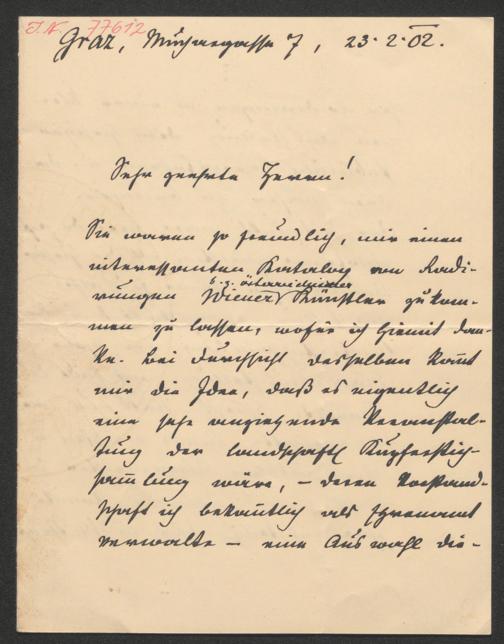 I.N. 77612
Graz, Muchargasse 7, 23.2.02.
Sehr geehrte Herren!
Sie waren so freundlich, mir einen
interessanten Katalog von Radi-
b.z. österreichischer
rungen Wiener Künstler zukom-
men zu lassen, wofür ich hiemit dan-
ke. Bei Durchsicht desselben kam̅t
mir die Idee, daß es eigentlich
eine sehr anziehende Veranstal-
tung der landschaftl Kupferstich-
sam̅lung wäre, – deren Vorstand-
schaft ich bekan̅tlich als Ehrenamt
verwalte – eine Auswahl die-